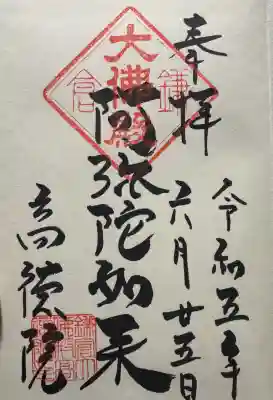 奉拝
令和五年
六月廿五日
鎌倉
大佛殿
阿弥陀如来
高徳院